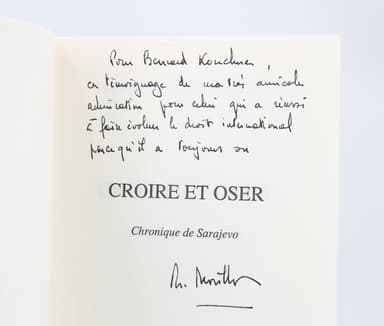 Pour Bernard Kouchner,
en témoignage de ma très amicale
admiration pour celui qui a réussi
à faire évoluer le droit international
parce qu'il a toujours su
CROIRE ET OSER
Chronique de Sarajevo
Ph. Morillon